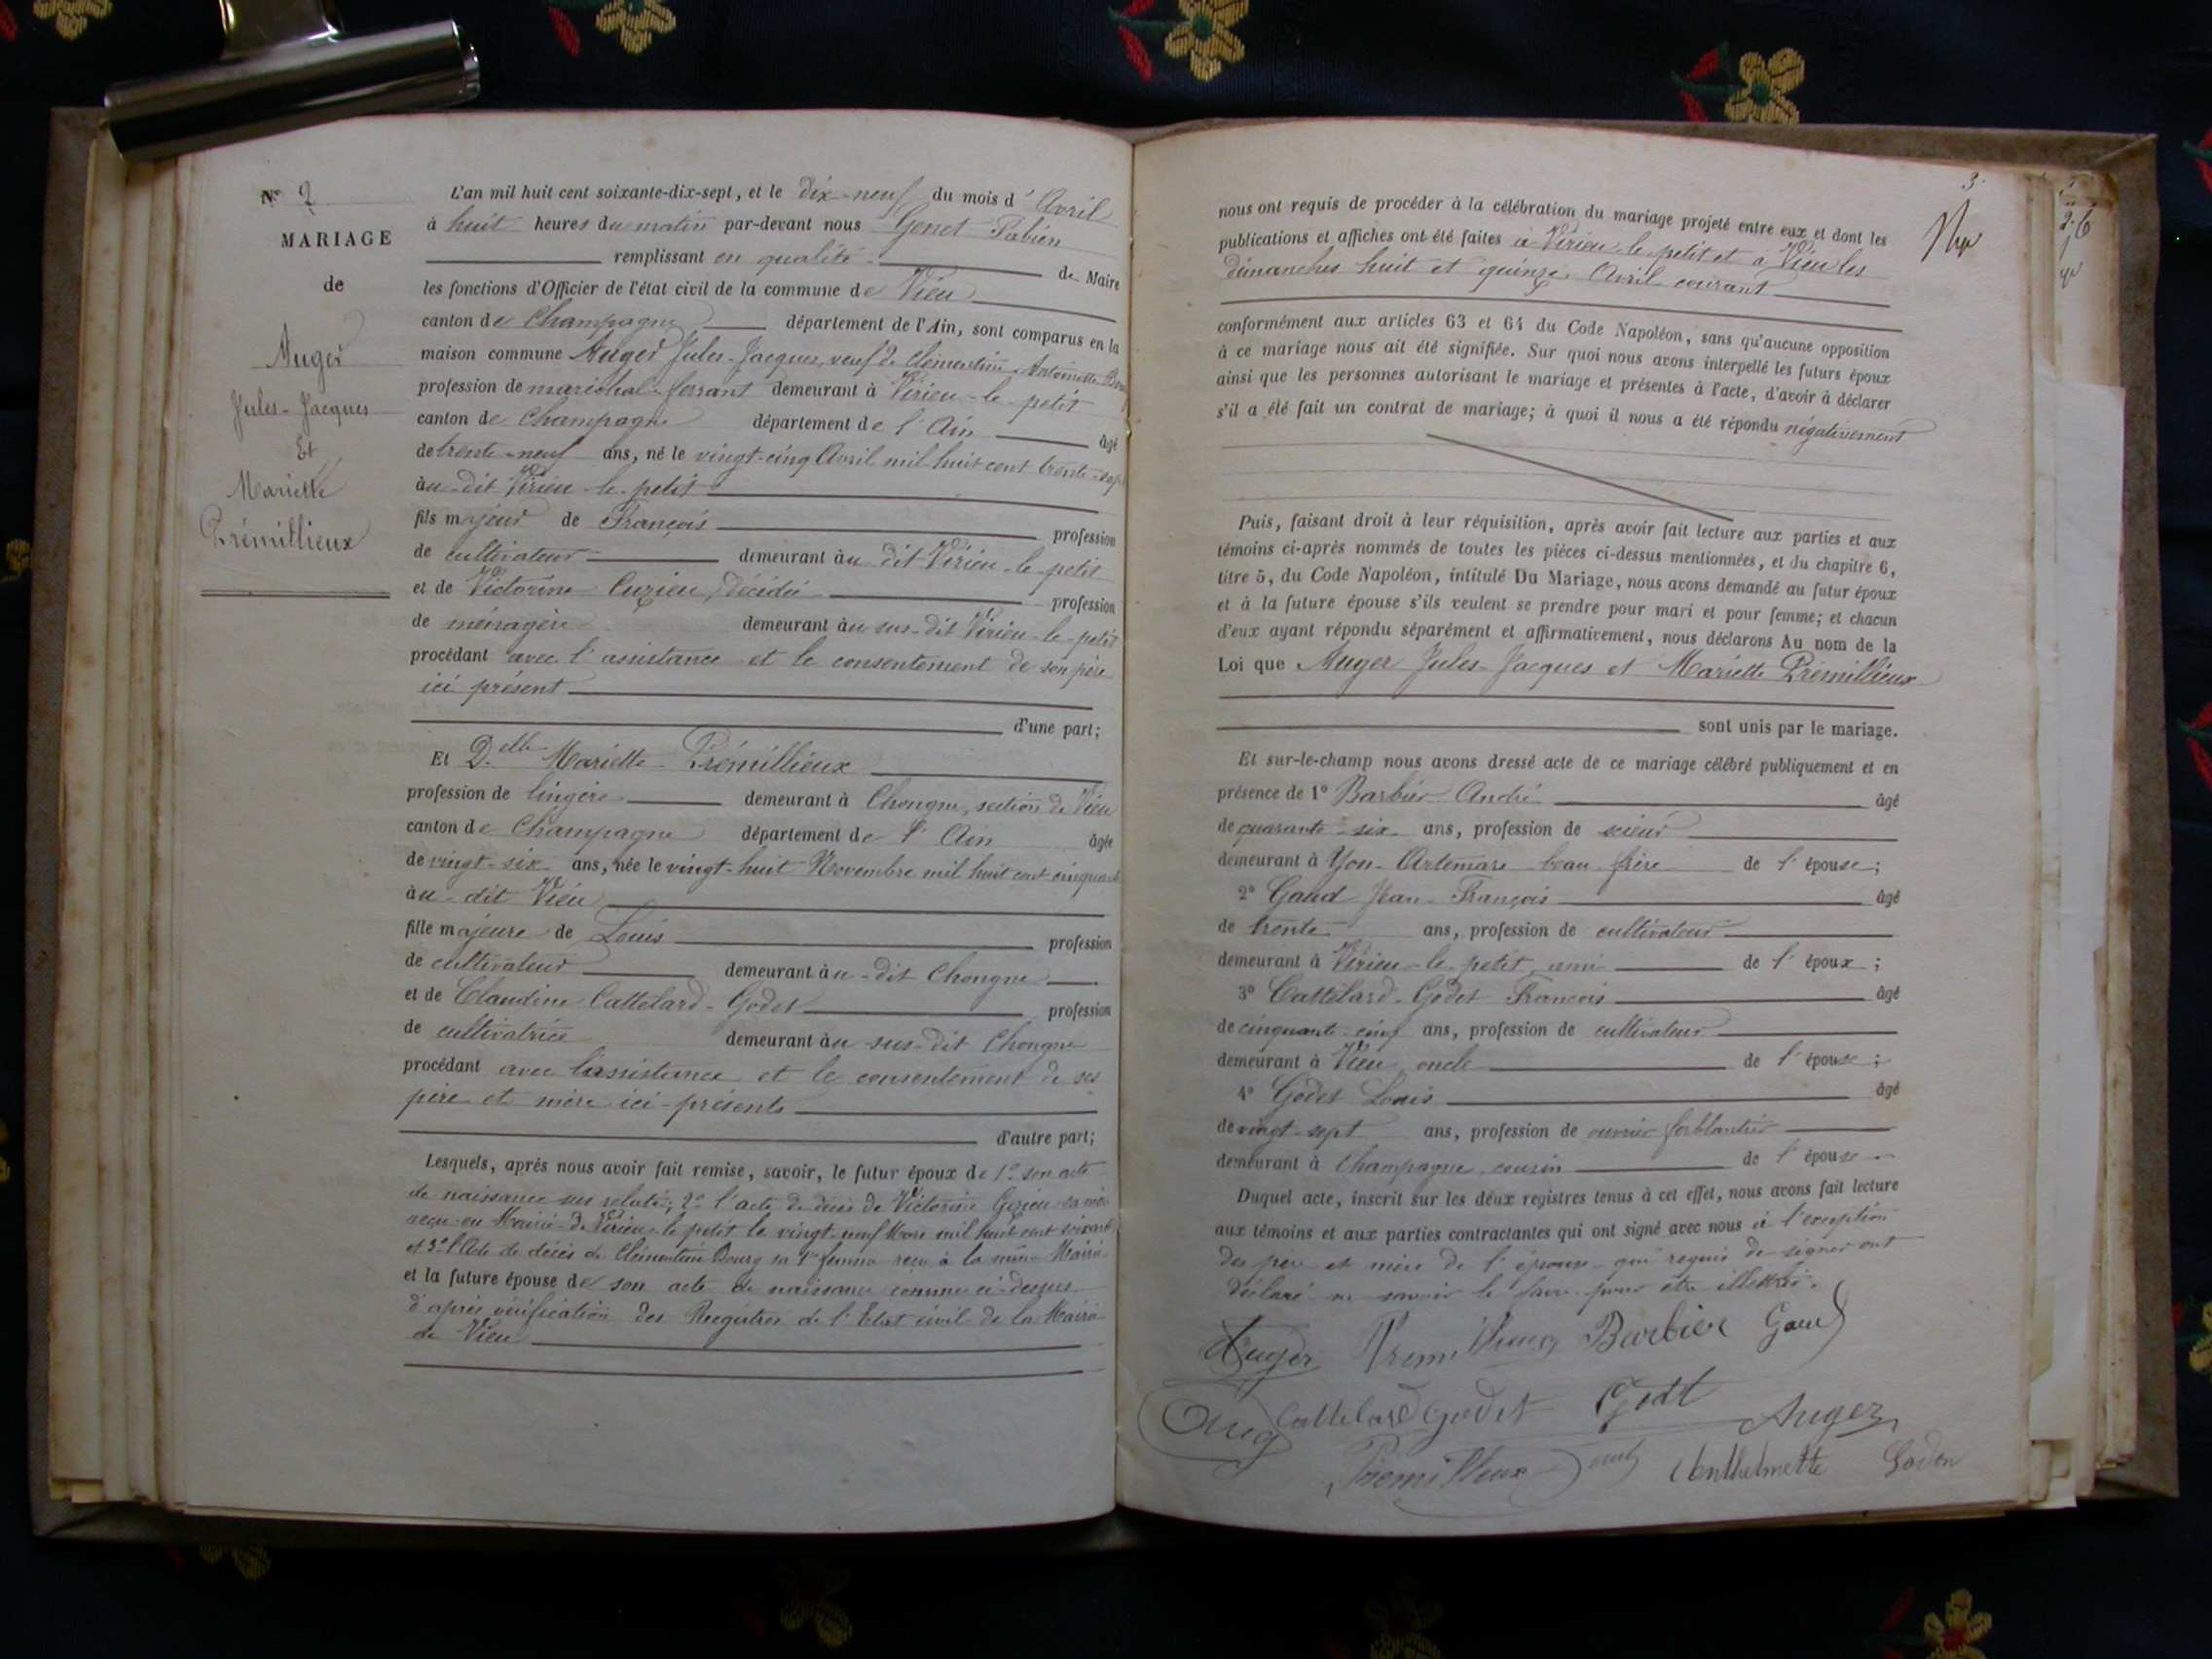 N° 2
MARIAGE
de
Auger
Jules-Jacques
Et
Mariette
Prémillieux
L'an mil huit cent soixante-dix-sept, et le dix-neuf du mois d'Avril
à huit heures du matin par-devant nous Genet Fabien
remplissant en qualité de Maire
les fonctions d'Officier de l'état civil de la commune de Vieu
canton de Champagne département de l'Ain, sont comparus en la
maison commune Auger Jules-Jacques, veuf de Clémentine Antoinette
profession de maréchal-ferrant demeurant à Virieu-le-petit
canton de Champagne département de l'Ain âgé
de trente-neuf ans, né le vingt-cinq Avril mil huit cent trente-sept
au-dit Virieu-le-petit
fils majeur de François profession
de cultivateur demeurant au dit Virieu-le-petit
et de Victorine Cuzieu, décédée profession
de ménagère demeurant au sus-dit Virieu-le-petit
procédant avec l'assistance et le consentement de son père
ici présent
d'une part;
Et D.elle Mariette Prémillieux
profession de lingère demeurant à Chongne, section de Vieu
canton de Champagne département de l'Ain âgée
de vingt-six ans, née le vingt-huit Novembre mil huit cent cinquante
au dit Vieu
fille majeure de Louis profession
de cultivateur demeurant au-dit Chongne
et de Claudine Cattelard-Godet profession
de cultivatrice demeurant au sus-dit Chongne
procédant avec l'assistance et le consentement de ses
père et mère ici-présents
d'autre part;
Lesquels, après nous avoir fait remise, savoir, le futur époux de 1° son acte
de naissance sus relaté; 2° l'acte de décès de Victorine Cuzieu sa mère
reçu en Mairie de Virieu-le petit le vingt-neuf Mars mil huit cent soixante
et 3° l'Acte de décès de Clémentine Bourg sa 1re femme reçu à la même Mairie
et la future épouse de son acte de naissance comme ci-dessus
d'après vérification des Registres de l'Etat civil de la Mairie
de Vieu
3.
nous ont requis de procéder à la célébration du mariage projeté entre eux et dont les
publications et affiches ont été faites à Virieu-le-petit et à Vieu les
dimanches huit et quinze Avril courant
conformément aux articles 63 et 64 du Code Napoléon, sans qu'aucune opposition
à ce mariage nous ait été signifiée. Sur quoi nous avons interpellé les futurs époux
ainsi que les personnes autorisant le mariage et présentes à l'acte, d'avoir à déclarer
s'il a été fait un contrat de mariage; à quoi il nous a été répondu négativement
Puis, faisant droit à leur réquisition, après avoir fait lecture aux parties et aux
témoins ci-après nommés de toutes les pièces ci-dessus mentionnées, et du chapitre 6,
titre 5, du Code Napoléon, intitulé Du Mariage, nous avons demandé au futur époux
et à la future épouse s'ils veulent se prendre pour mari et pour femme; et chacun
d'eux ayant répondu séparément et affirmativement, nous déclarons Au nom de la
Loi que Auger Jules-Jacques et Mariette Prémillieux
sont unis par le mariage.
Et sur-le-champ nous avons dressé acte de ce mariage célébré publiquement et en
présence de 1° Barbier André âgé
de quarante-six ans, profession de scieur
demeurant à Yon-Artemare beau-frère de l'épouse;
2° Gaud Jean-François âgé
de trente ans, profession de cultivateur
demeurant à Virieu-le-petit, ami de l'époux;
3° Cattelard-Godet François âgé
de cinquante-cinq ans, profession de cultivateur
demeurant à Vieu oncle de l'épouse;
4° Godet Louis âgé
de vingt-sept ans, profession de ouvrier ferblantier
demeurant à Champagne, cousin de l'épouse
Duquel acte, inscrit sur les deux registres tenus à cet effet, nous avons fait lecture
aux témoins et aux parties contractantes qui ont signé avec nous à l'exception
des père et mère de l'épouse qui requis de signer ont
déclaré ne savoir le faire pour être illettrés.
Auger Premillieux Barbier Gaud
Cattelard Godet Godet Auger
Premillieux Anthelmette Godet
2.6